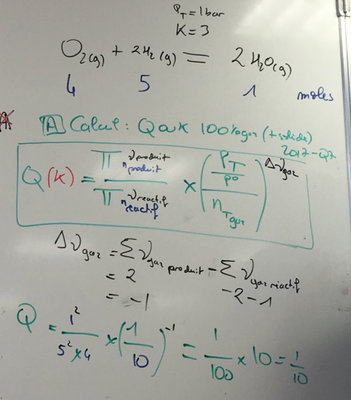 P_T = 1 bar
K = 3
O₂(g) + 2H₂(g) = 2H₂O(g)
4 5 1 moles
A Calcul : Q ou K 100% gaz (+ solide)
2017-Q7
Q (K) = Π n produit^ν produit / Π n réactif^ν réactif × (P_T/P° / n_T gaz)^Δν gaz
Δν gaz = Σν gaz produit - Σν gaz réactif
= 2 - 2 - 1
= -1
Q = 1² / 5² × 4 × (1/10)⁻¹ = 1/100 × 10 = 1/10